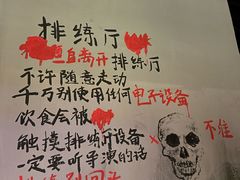 排练厅
擅自离开排练厅
不许随意走动
千万别使用任何电子设备
饮食会被
不准
触摸排练厅设备
一定要听导演的话